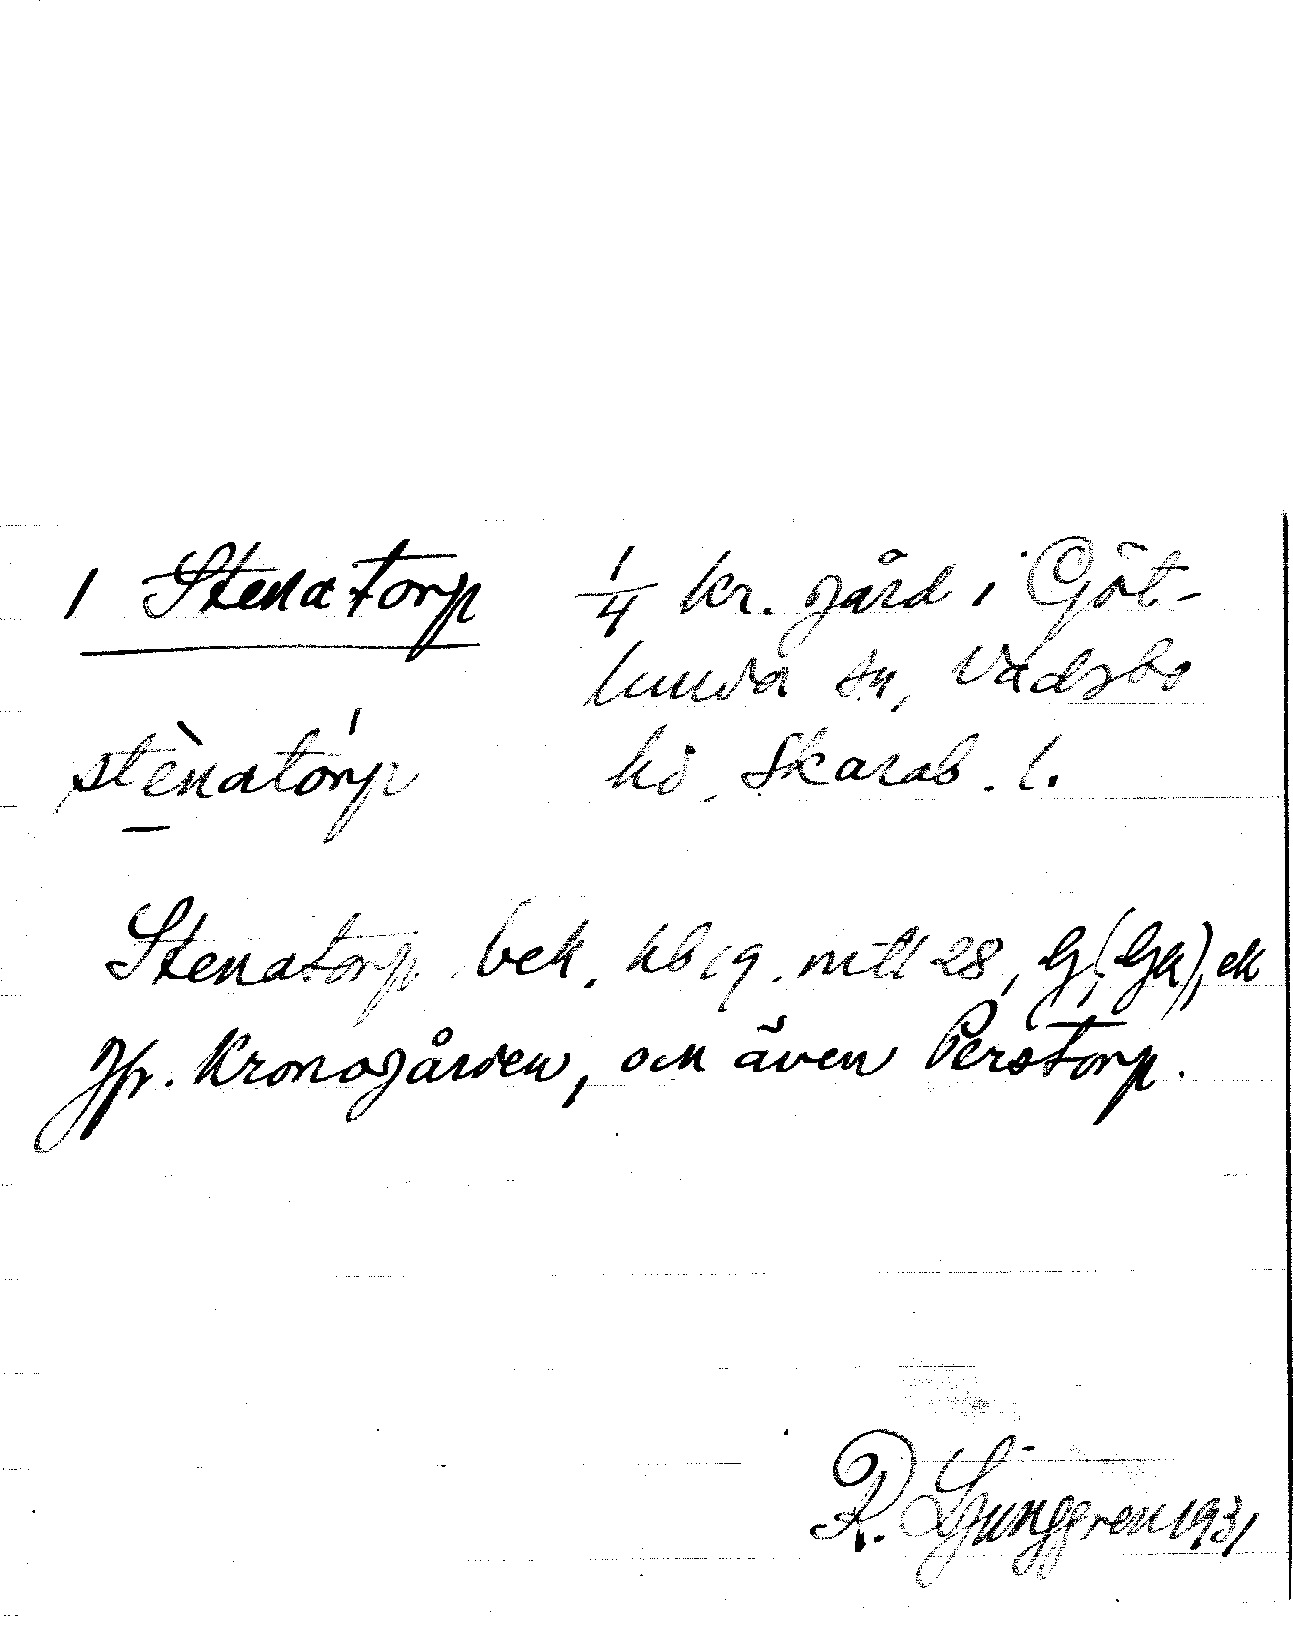 1 Stenatorp 1/4 kr. gård i Göt-
lunda sn, Vadsbo
stènatórp hd, Skarab. l.
Stenatorp bek. kb 19. mitt 28, G (Gk), ek
Jfr. Kronogården, och även Perstorp.
R. Ljunggren 1931